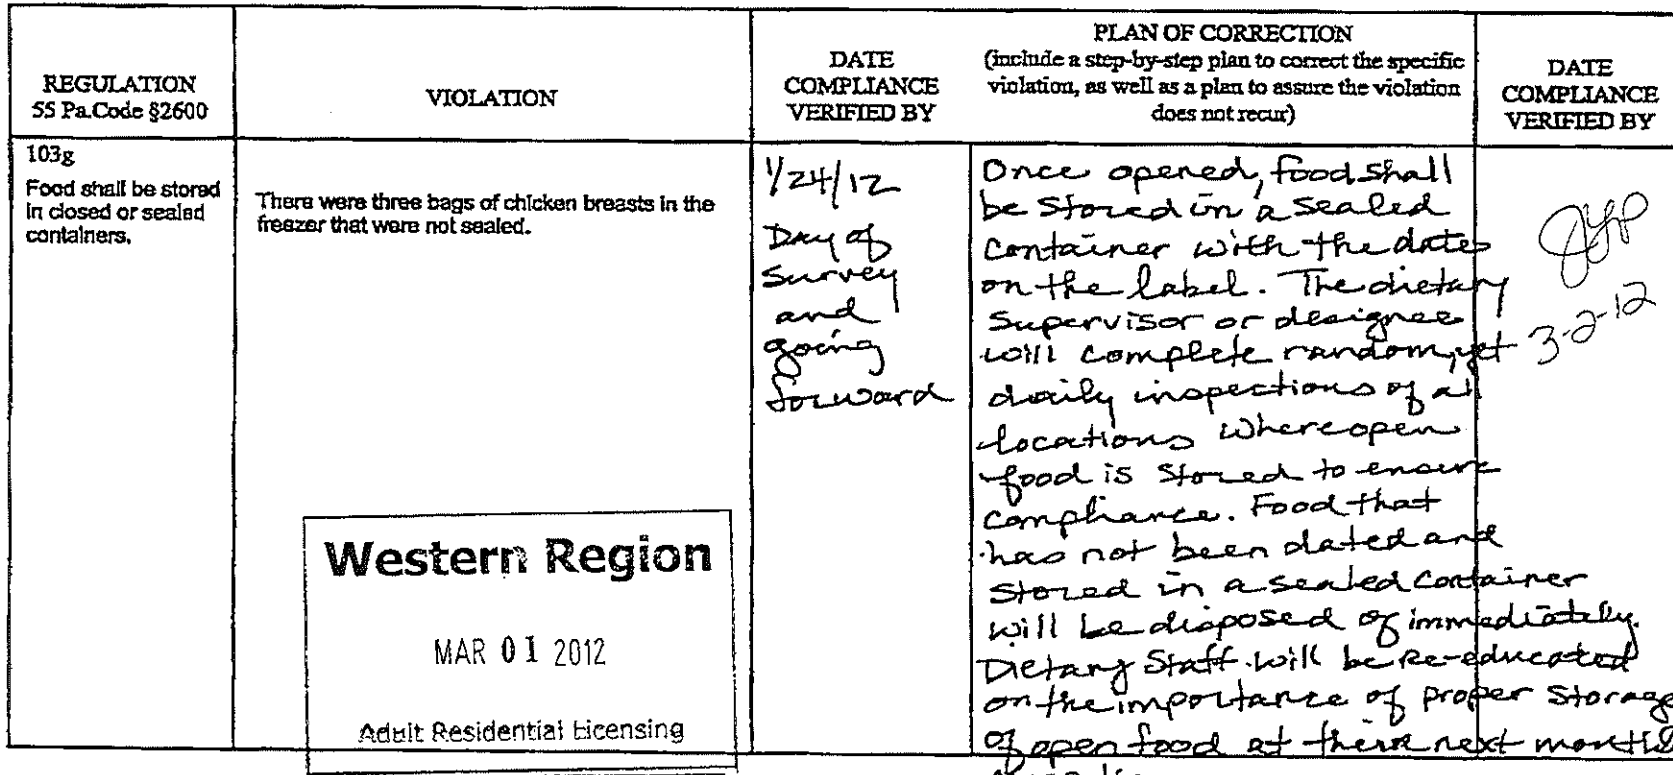 REGULATION
55 Pa.Code §2600
VIOLATION
DATE
COMPLIANCE
VERIFIED BY
PLAN OF CORRECTION
(include a step-by-step plan to correct the specific
violation, as well as a plan to assure the violation
does not recur)
DATE
COMPLIANCE
VERIFIED BY
103g
Food shall be stored
in closed or sealed
containers.
There were three bags of chicken breasts in the
freezer that were not sealed.
1/24/12
Day of
Survey
and
going
forward
Once opened, food shall
be stored in a sealed
container with the dates
on the label. The dietary
Supervisor or designee
will complete random, yet
daily inspections of all
locations where open
food is stored to ensure
compliance. Food that
has not been dated and
stored in a sealed container
will be disposed of immediately.
Dietary Staff will be re-educated
on the importance of proper storage
of open food at their next
3-2-12
Western Region
MAR 01 2012
Adult Residential Licensing